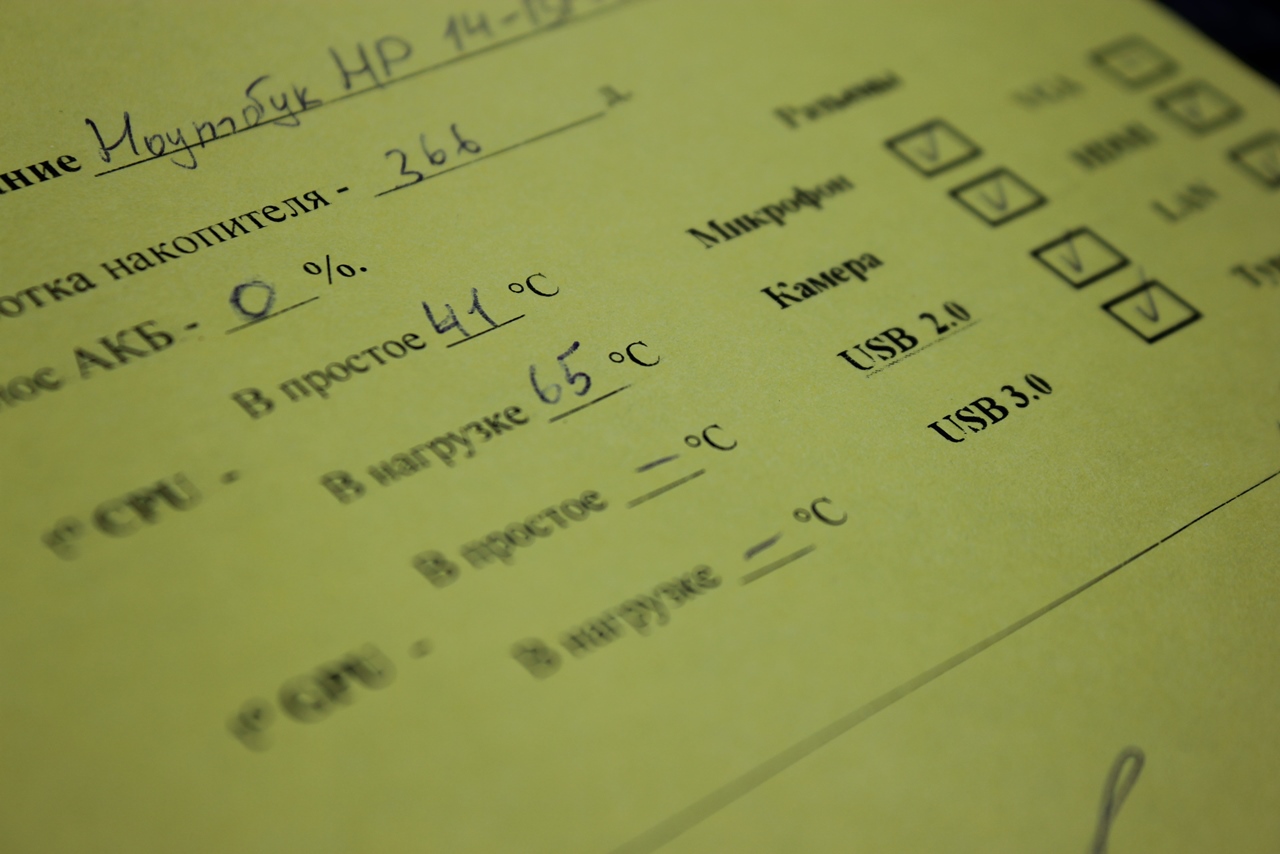 ние Ноутбук HP 14-
отка накопителя - 366 д
нос АКБ - 0 %.
t° CPU - В простое 41 °C
В нагрузке 65 °C
t° GPU - В простое — °C
В нагрузке — °C
Разъемы
Микрофон ✓
Камера ✓
USB 2.0 ✓
USB 3.0 ✓
VGA
HDMI ✓
LAN